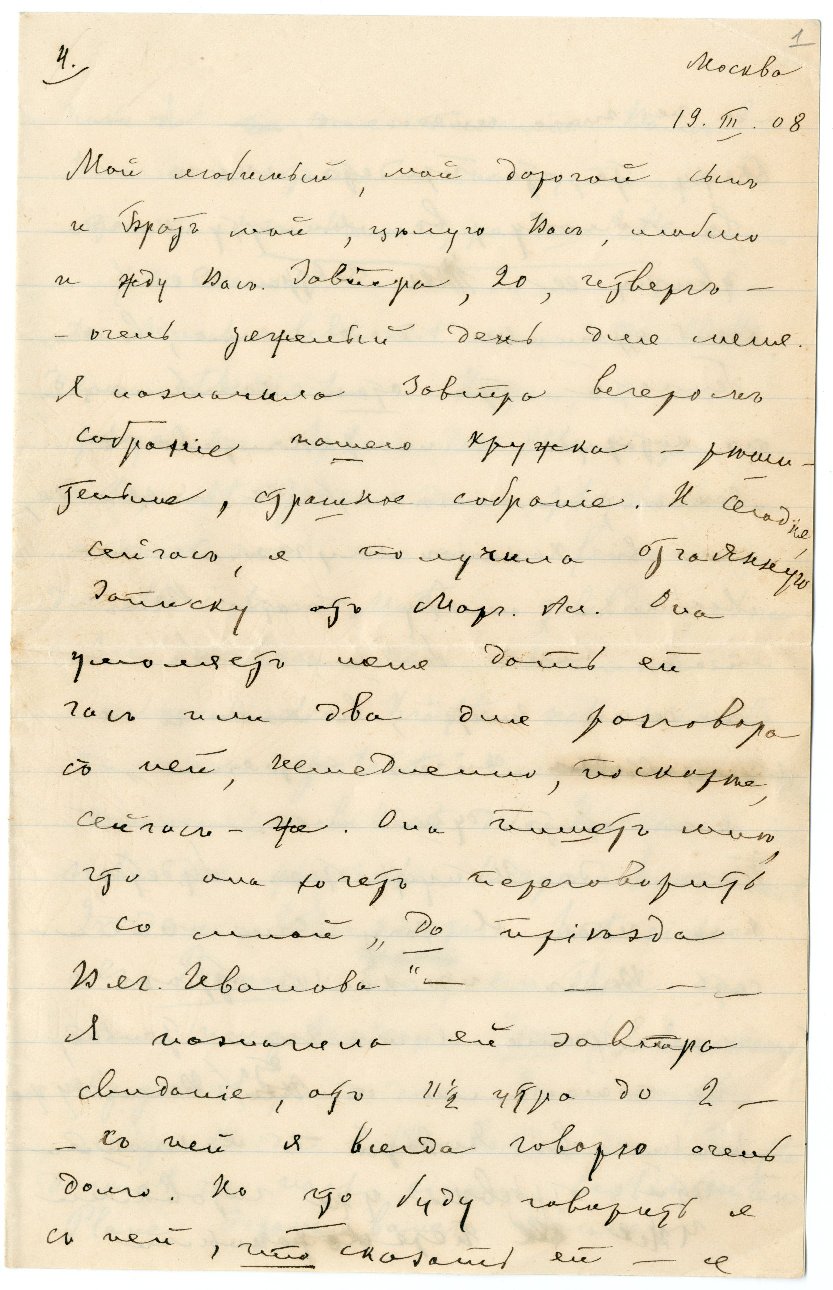 1
4.
Москва
19. III. 08
Мой любимый, мой дорогой сынъ
и Братъ мой, цѣлую Васъ, люблю
и жду Васъ. Завтра, 20, четвергъ —
— очень тяжелый день для меня.
Я назначила Завтра вечеромъ
собраніе нашего кружка — рѣши-
тельное, страшное собраніе. И сегодня,
сейчасъ, я получила отчаянную
Записку отъ Марг. Ал. Она
умоляетъ меня дать ей
часъ или два для разговора
съ ней, немедленно, поскорѣе,
сейчасъ-же. Она пишетъ мнѣ,
что она хочетъ переговорить
со мной „до пріѣзда
Вяч. Иванова“ — — — —
Я назначила ей завтра
свиданіе, отъ 11½ утра до 2 —
— съ ней я всегда говорю очень
долго. Но что буду говорить я
съ ней, что сказать ей — я